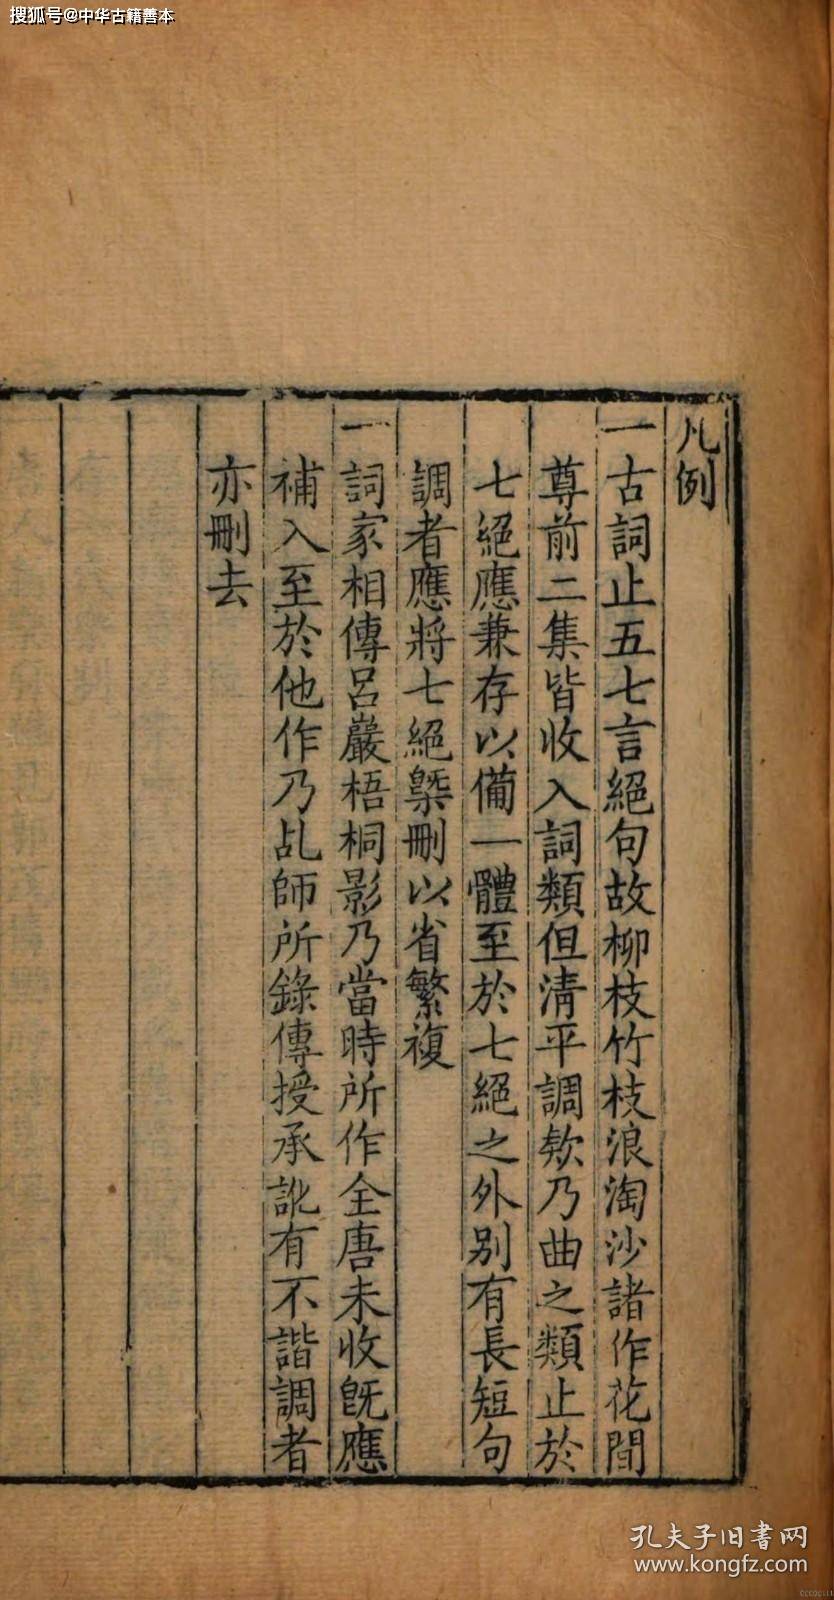 搜狐号@中华古籍善本
凡例
一古詞止五七言絕句故柳枝竹枝浪淘沙諸作花間
尊前二集皆收入詞類但清平調欸乃曲之類止於
七絕應兼存以備一體至於七絕之外別有長短句
調者應將七絕槩刪以省繁複
一詞家相傳呂巖梧桐影乃當時所作全唐未收旣應
補入至於他作乃乩師所錄傳授承訛有不諧調者
亦刪去
孔夫子旧书网
www.kongfz.com